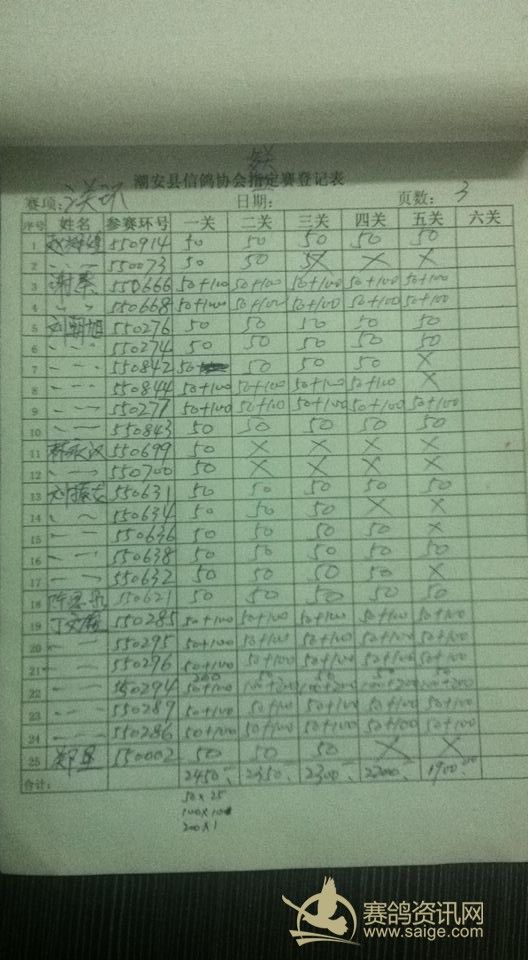 潮安县信鸽协会指定赛登记表
赛项: 日期: 页数: 3
序号 姓名 参赛环号 一关 二关 三关 四关 五关 六关
1 550914 50 50 50 50 50
2 〃 〃 550073 50 50 X X X
3 谢 550666 50+100 50+100 50+100 50+100 50+100
4 〃 〃 550668 50+100 50+100 50+100 50+100 50+100
5 刘朝旭 550276 50 50 50 50 50
6 〃 〃 550274 50 50 50 50 50
7 〃 〃 550842 50 50 50 50 X
8 〃 〃 550844 50+100 50+100 50+100 50+100 X
9 〃 〃 550277 50+100 50+100 50+100 50+100 50+100
10 〃 〃 550843 50 50 50 50 50
11 550699 50 X X X X
12 〃 〃 550700 50 X X X X
13 刘 550631 50 50 50 50 50
14 〃 〃 550634 50 50 50 X X
15 〃 〃 550636 50 50 50 50 X
16 〃 〃 550638 50 50 50 50 50
17 〃 〃 550632 50 50 50 50 X
18 550621 50 50 50 50 50
19 丁 550285 50+100 50+100 50+100 50+100 50+100
20 〃 〃 550295 50+100 50+100 50+100 50+100 50+100
21 〃 〃 550296 50+100 50+100 50+100 50+100 50+100
22 〃 〃 550294 200 50+100 50 100+200 50 100+200 50 100+200 50 100+200
23 〃 〃 550289 50+100 50+100 50+100 50+100 50+100
24 〃 〃 550286 50+100 50+100 50+100 50+100 50+100
25 郑 550002 50 50 50 X X
合计: 2450 2350 2300 2200 1900
50×25
100×10
200×1
赛鸽资讯网
www.saige.com